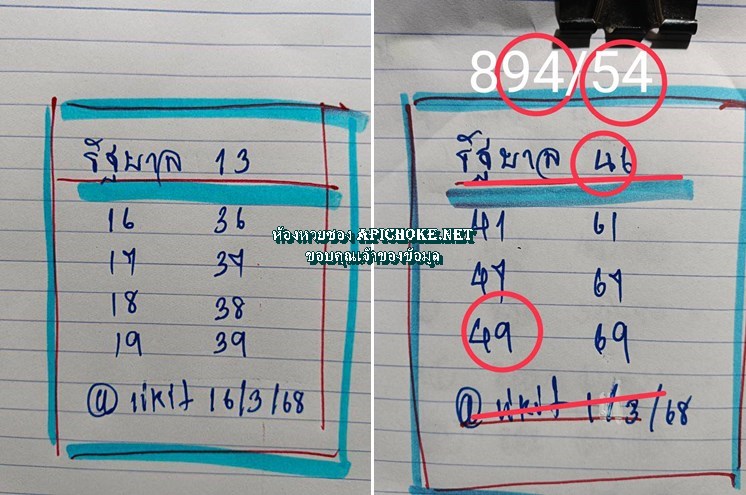 รัฐบาล 13
16 36
17 37
18 38
19 39
@ 16/3/68
894/54
รัฐบาล 46
41 61
47 67
49 69
@ 1/3/68
ห้องหวยซอง APICHOKE.NET
ขอบคุณเจ้าของข้อมูล